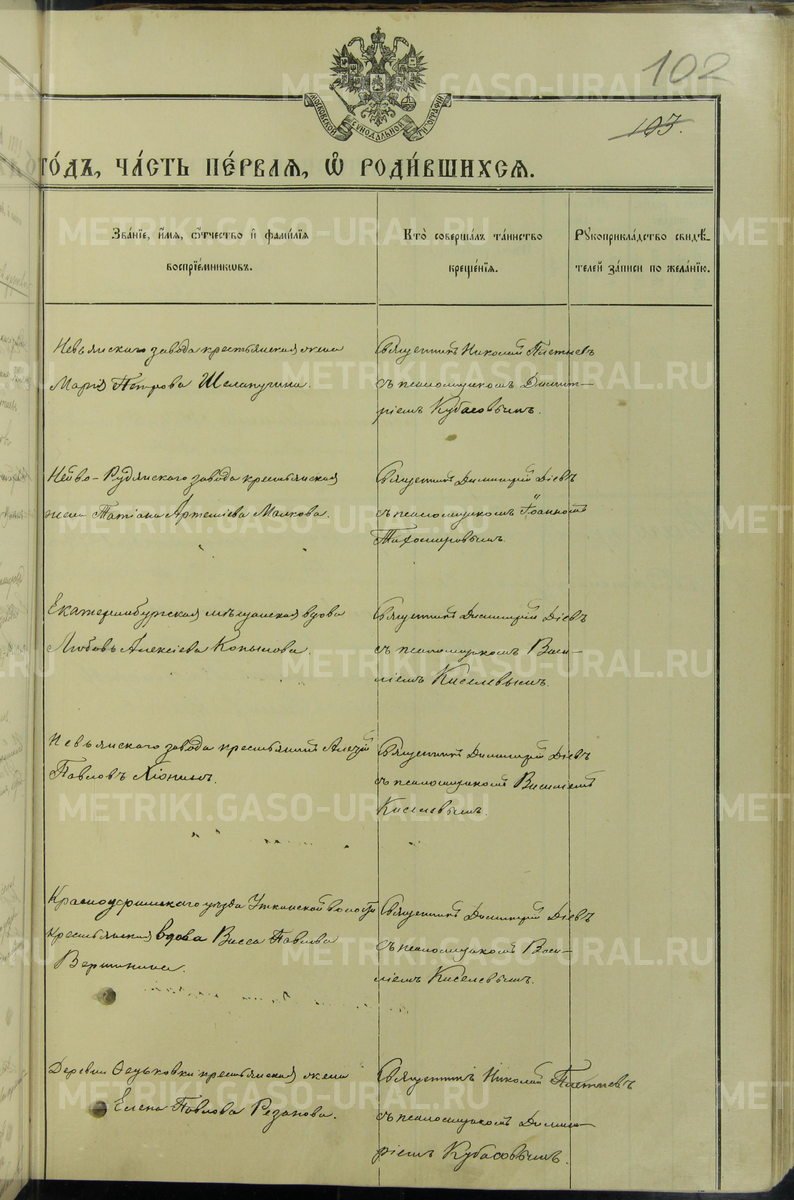 102
103.
МОСКОВСКОЙ СѴНОДАЛЬНОЙ ТИПОГРАФІИ
ГО́ДЪ, ЧА́СТЬ ПЕ́РВАѦ, Ѡ҆ РОДИ́ВШИХСѦ.
Зва́нїе, и҆́мѧ, ѻ҆́тчество и҆ фами́лїѧ
воспрїе́мникѡвъ.
Кто̀ соверша́лъ та́инство
креще́нїѧ.
Рꙋкоприкла́дство свидѣ́-
телей за́писи по жела́нїю.
Невьянскаго завода крестьянская жена
Марія Петрова Шелапугина.
Священникъ Николай
съ псаломщикомъ Димит-
ріемъ Кубасовымъ.
Нейво-Рудянскаго завода крестьянская
жена Татіана Артеміева Малкова.
Священникъ Димитрій Діевъ
съ псаломщикомъ Іоанномъ
Тихомировымъ.
Екатеринбургская мѣщанская вдова
Любовь Алексіева Копылова.
Священникъ Димитрій Діевъ
съ псаломщикомъ Васи-
ліемъ Киселевымъ.
Невьянскаго завода крестьянинъ
Павловъ
Священникъ Димитрій Діевъ
съ псаломщикомъ Василіемъ
Киселевымъ.
Красноуфимскаго уѣзда Уткинской волости
крестьянская вдова Васса Павлова
Вершинина.
Священникъ Димитрій Діевъ
съ псаломщикомъ Васи-
ліемъ Киселевымъ.
Деревни Ѳедьковки крестьянская жена
Елена Павлова Резанова.
Священникъ Николай
съ псаломщикомъ Димит-
ріемъ Кубасовымъ.
METRIKI.GASO-URAL.RU